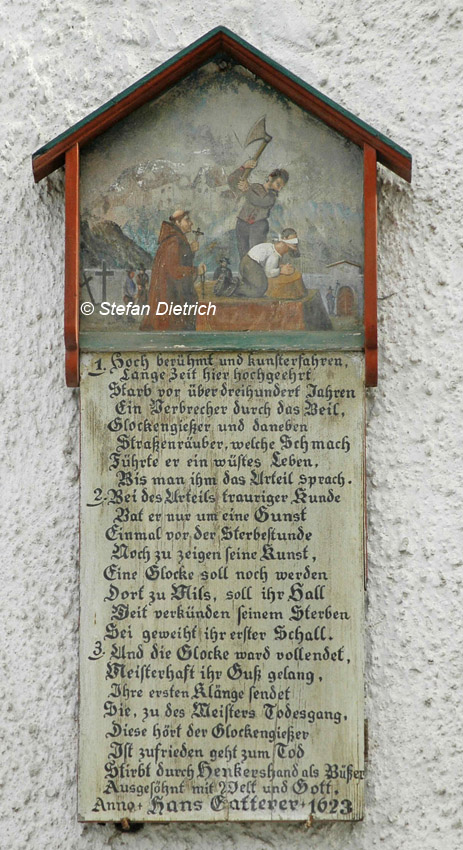 © Stefan Dietrich
1. Hoch berühmt und kunsterfahren,
Lange Zeit hier hochgeehrt
Starb vor über dreihundert Jahren
Ein Verbrecher durch das Beil,
Glockengießer und daneben
Straßenräuber, welche Schmach
Führte er ein wüstes Leben,
Bis man ihm das Urteil sprach.
2. Bei des Urteils trauriger Kunde
Bat er nur um eine Gunst
Einmal vor der Sterbestunde
Noch zu zeigen seine Kunst,
Eine Glocke soll noch werden
Dort zu Mils, soll ihr Hall
Weit verkünden seinem Sterben
Sei geweiht ihr erster Schall.
3. Und die Glocke ward vollendet,
Meisterhaft ihr Guß gelang,
Ihre ersten Klänge sendet
Sie, zu des Meisters Todesgang,
Diese hört der Glockengießer
Ist zufrieden geht zum Tod
Stirbt durch Henkershand als Büßer
Ausgesöhnt mit Welt und Gott.
Anno + Hans Gatterer + 1623